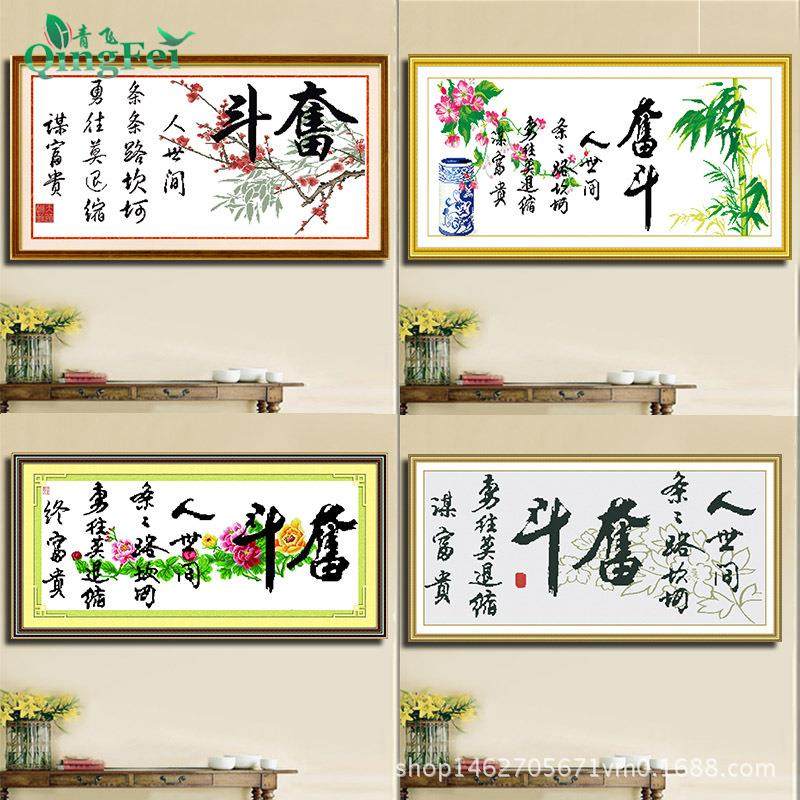 青飞
QingFei
奮斗
人世间
条条路坎坷
勇往莫退缩
谋富贵
奮斗
人世间
条々路坎坷
勇往莫退缩
谋富贵
奮斗
人世间
条々路坎坷
勇往莫退缩
终富贵
人世间
条々路坎坷
奮斗
勇往莫退缩
谋富贵
shop1462705671vm0.1688.com